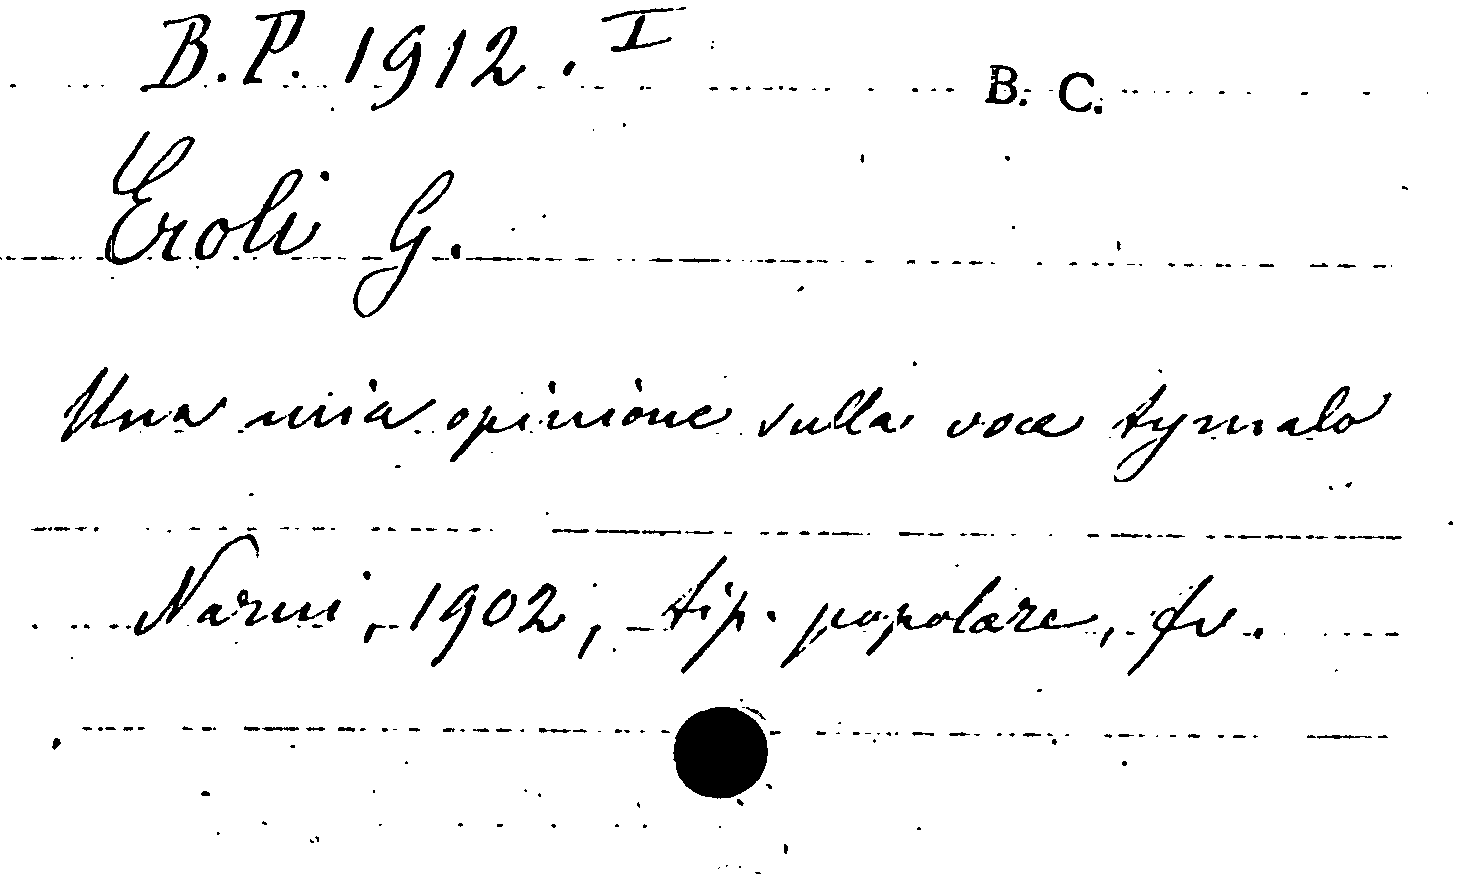 B.P. 1912. I
B. C.
Eroli G.
Una mia opinione sulla voce tymalo
Narni, 1902, tip. popolare, fv.